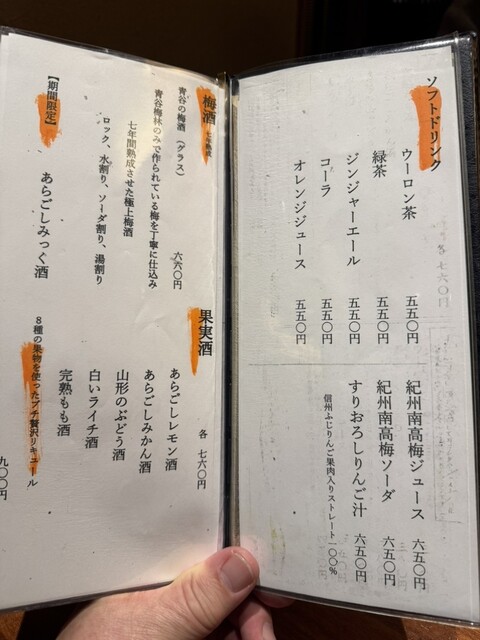 ソフトドリンク
ウーロン茶 五五〇円
緑茶 五五〇円
ジンジャーエール 五五〇円
コーラ 五五〇円
オレンジジュース 五五〇円
紀州南高梅ジュース 六五〇円
紀州南高梅ソーダ 六五〇円
すりおろしりんご汁 六五〇円
信州ふじりんご果肉入りストレート一〇〇%
梅酒 七年熟成
青谷の梅酒(グラス) 六六〇円
青谷梅林のみで作られている梅を丁寧に仕込み
七年間熟成させた極上梅酒
ロック、水割り、ソーダ割り、湯割り
果実酒 各 七六〇円
あらごしレモン酒
あらごしみかん酒
山形のぶどう酒
白いライチ酒
完熟もも酒
【期間限定】
あらごしみっく酒
8種の果物を使ったプチ贅沢リキュール
九〇〇円